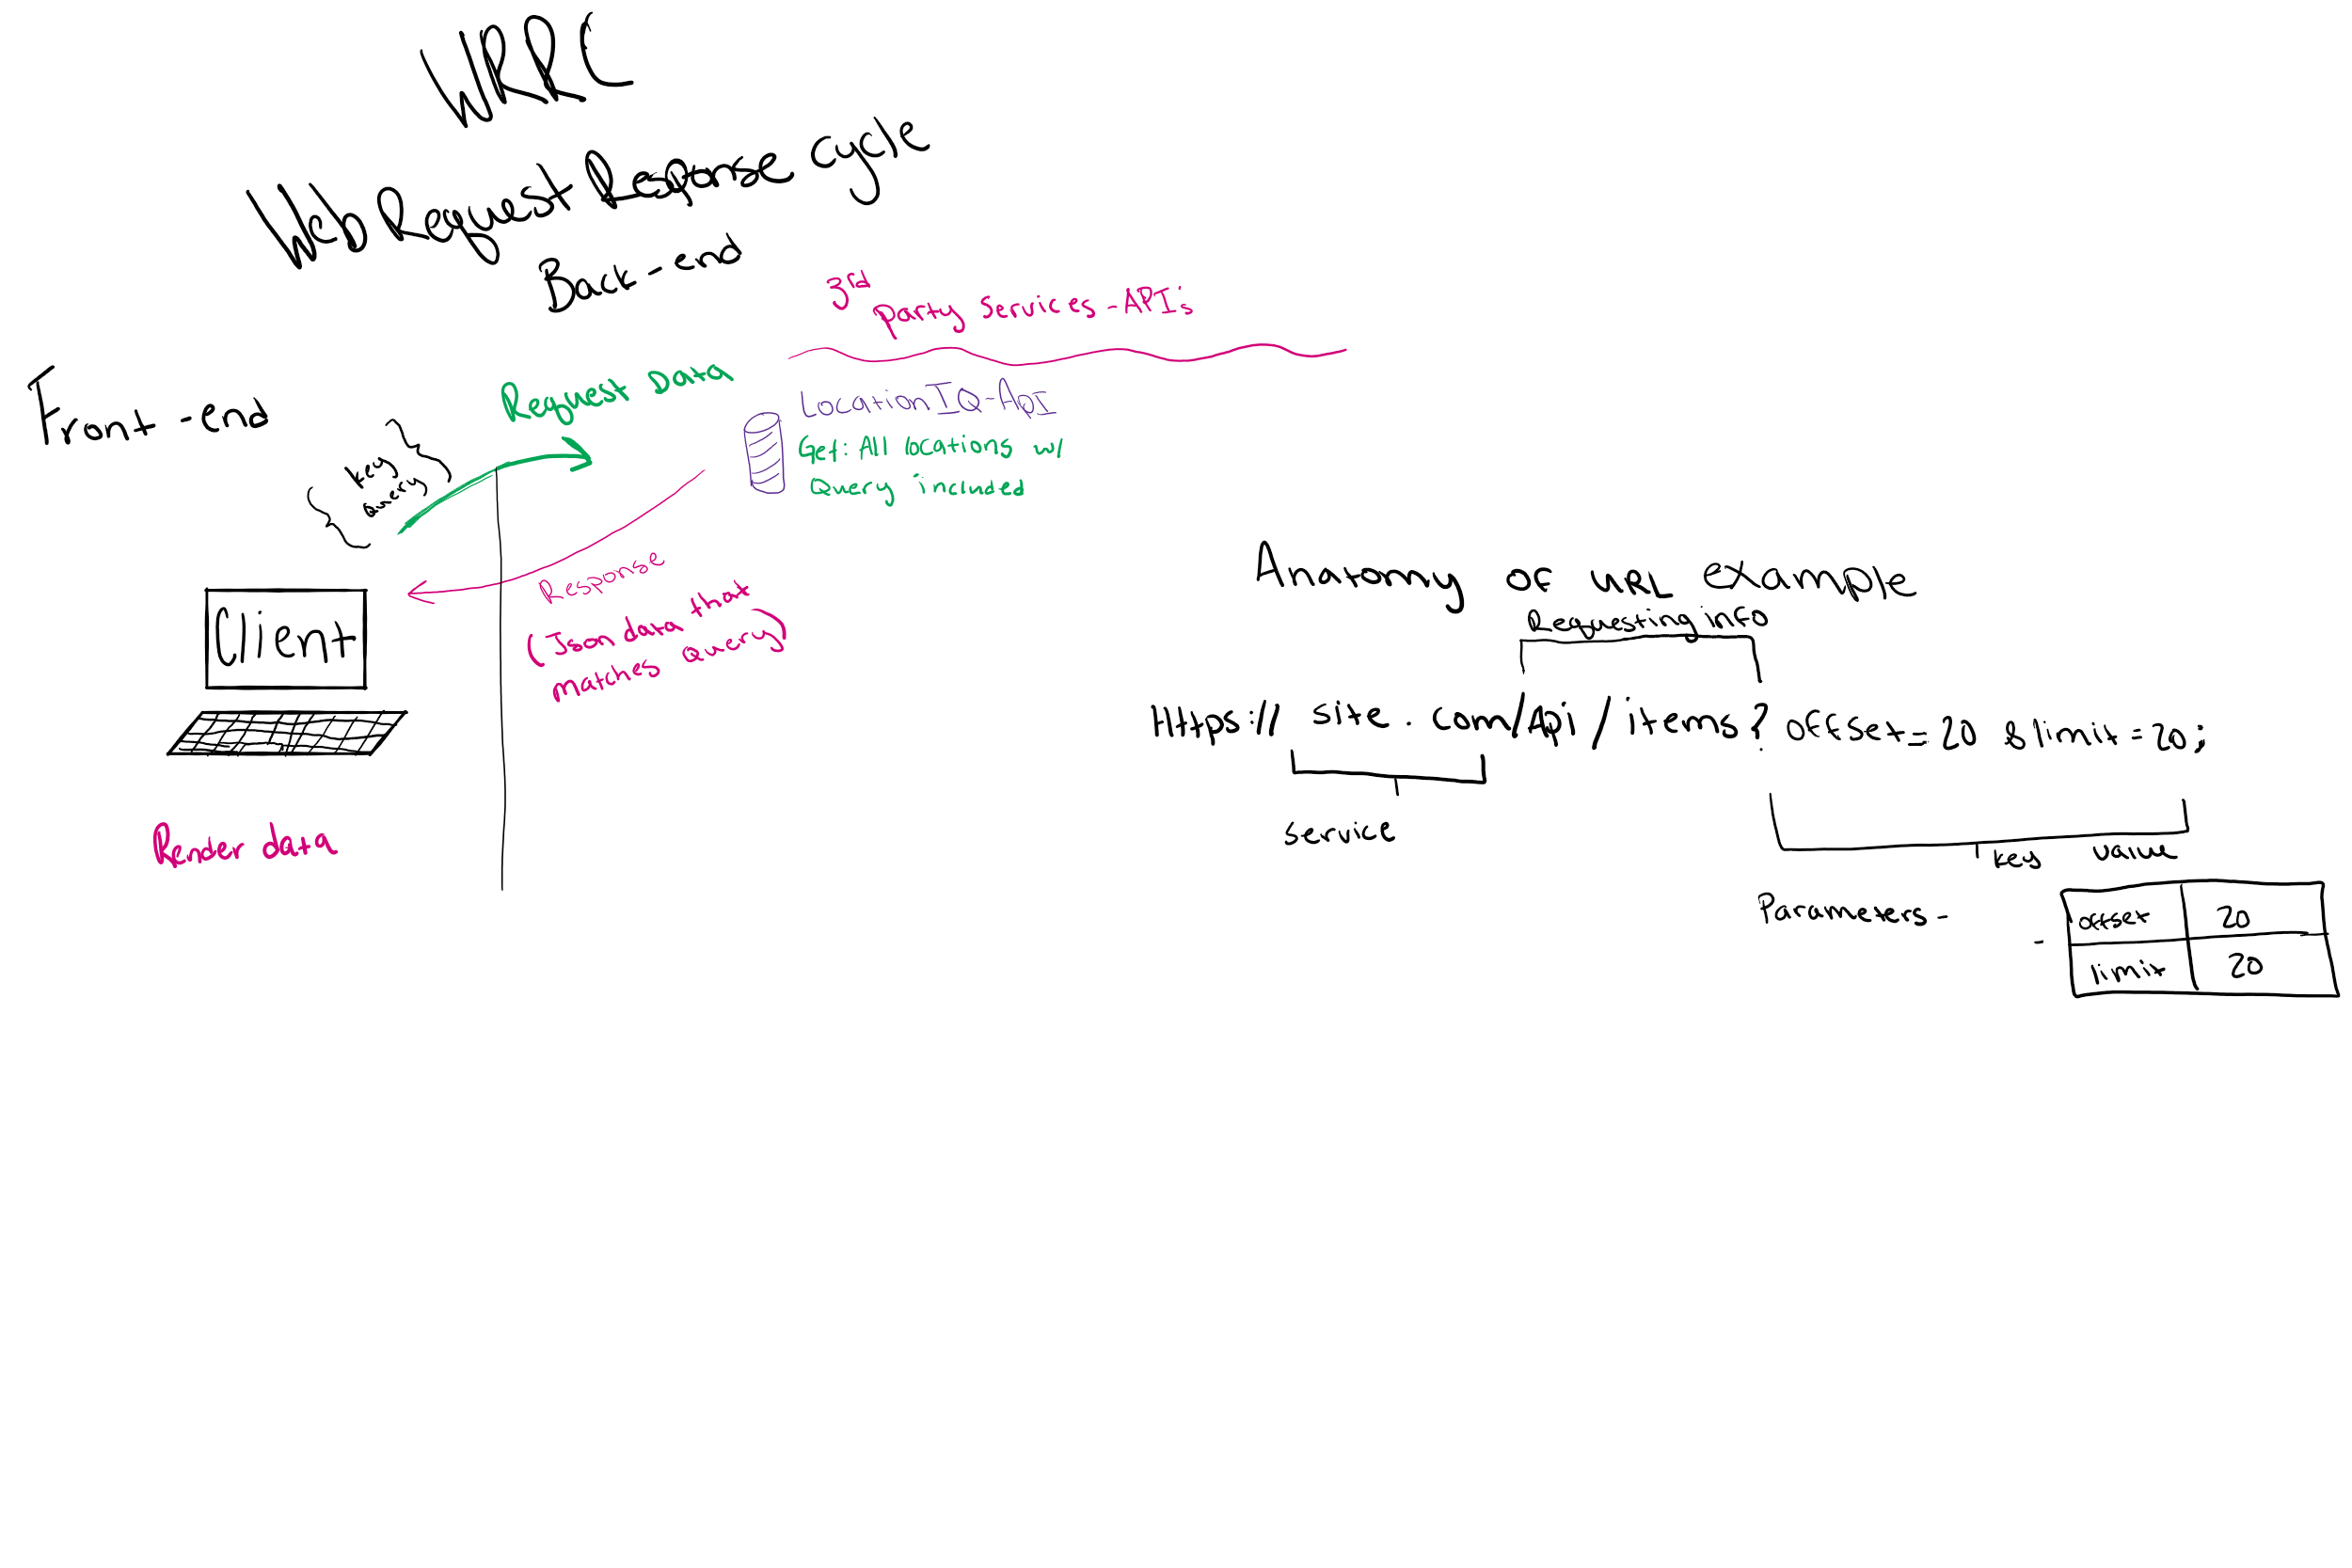 WRRC
Web Request Response cycle
Back-end
3rd
party services - API's
Front-end
Request Data
LocationIQ-ApI
Get: All locations w/
Query included
{ key
query }
Response
(Json data that
matches query)
Client
Render data
Anatomy of URL example
Requesting info
Https:// site.com/Api/items? offset=20 &limit=20;
service
key value
Parameters -
- offset 20
limit 20